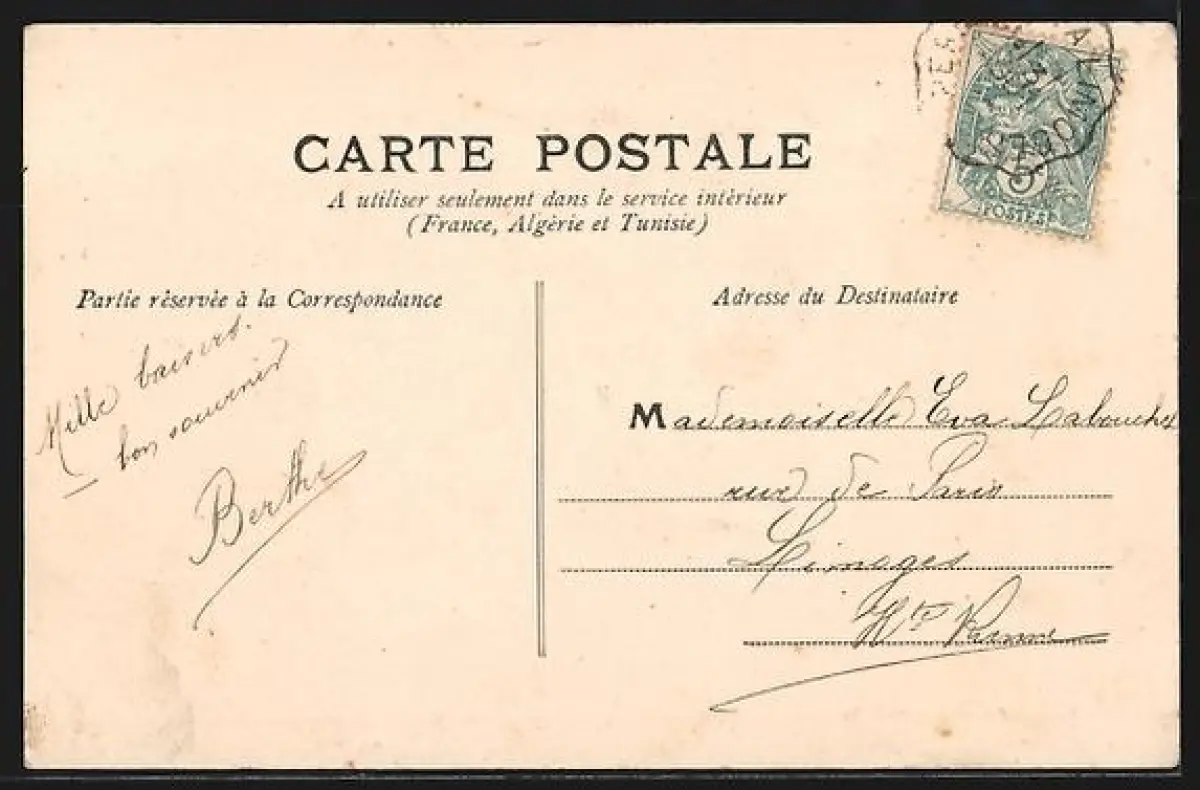 CARTE POSTALE
A utiliser seulement dans le service intérieur
(France, Algérie et Tunisie)
Partie réservée à la Correspondance
Mille baisers.
bon souvenir
Berthe
Adresse du Destinataire
Mademoiselle Eva
rue de Paris
Limoges
Hte Vienne
5
POSTES